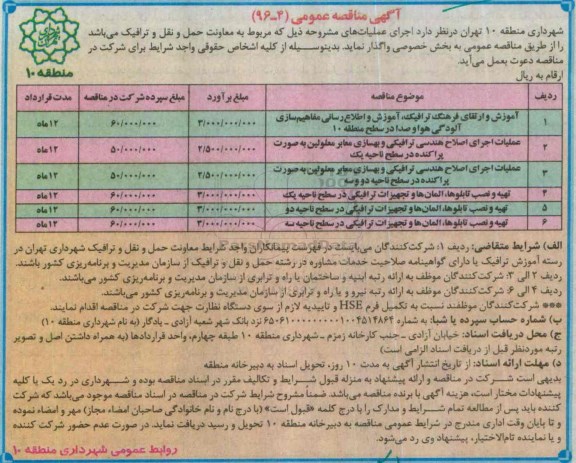 آگهی مناقصه عمومی (۴-۹۶)
شهرداری منطقه ۱۰ تهران درنظر دارد اجرای عملیات‌های مشروحه ذیل که مربوط به معاونت حمل و نقل و ترافیک می‌باشد
را از طریق مناقصه عمومی به بخش خصوصی واگذار نماید. بدینوسیله از کلیه اشخاص حقوقی واجد شرایط برای شرکت در
مناقصه دعوت بعمل می‌آید.
ارقام به ریال
منطقه ۱۰
ردیف موضوع مناقصه مبلغ برآورد مبلغ سپرده شرکت در مناقصه مدت قرارداد
۱ آموزش و ارتقای فرهنگ ترافیک، آموزش و اطلاع‌رسانی مفاهیم‌سازی آلودگی هوا و صدا در سطح منطقه ۱۰ ۳/۰۰۰/۰۰۰/۰۰۰ ۶۰/۰۰۰/۰۰۰ ۱۲ماه
۲ عملیات اجرای اصلاح هندسی ترافیکی و بهسازی معابر معلولین به صورت پراکنده در سطح ناحیه یک ۲/۵۰۰/۰۰۰/۰۰۰ ۵۰/۰۰۰/۰۰۰ ۱۲ماه
۳ عملیات اجرای اصلاح هندسی ترافیکی و بهسازی معابر معلولین به صورت پراکنده در سطح ناحیه دو وسه ۲/۵۰۰/۰۰۰/۰۰۰ ۵۰/۰۰۰/۰۰۰ ۱۲ماه
۴ تهیه و نصب تابلوها، المان‌ها و تجهیزات ترافیکی در سطح ناحیه یک ۳/۰۰۰/۰۰۰/۰۰۰ ۶۰/۰۰۰/۰۰۰ ۱۲ماه
۵ تهیه و نصب تابلوها، المان‌ها و تجهیزات ترافیکی در سطح ناحیه دو ۳/۰۰۰/۰۰۰/۰۰۰ ۶۰/۰۰۰/۰۰۰ ۱۲ماه
۶ تهیه و نصب تابلوها، المان‌ها و تجهیزات ترافیکی در سطح ناحیه سه ۳/۰۰۰/۰۰۰/۰۰۰ ۶۰/۰۰۰/۰۰۰ ۱۲ماه
الف) شرایط متقاضی: ردیف ۱: شرکت‌کنندگان می‌بایست در فهرست پیمانکاران واجد شرایط معاونت حمل و نقل و ترافیک شهرداری تهران در
رسته آموزش ترافیک یا دارای گواهینامه صلاحیت خدمات مشاوره در رشته حمل و نقل و ترافیک از سازمان مدیریت و برنامه‌ریزی کشور باشند.
ردیف ۲ الی ۳: شرکت‌کنندگان موظف به ارائه رتبه ابنیه و ساختمان یا راه و ترابری از سازمان مدیریت و برنامه‌ریزی کشور می‌باشند.
ردیف ۴ الی ۶: شرکت‌کنندگان موظف به ارائه رتبه نیرو و یا راه و ترابری از سازمان مدیریت و برنامه‌ریزی کشور می‌باشند.
*** شرکت‌کنندگان موظفند نسبت به تکمیل فرم HSE و تاییدیه لازم از سوی دستگاه نظارت جهت شرکت در مناقصه اقدام نمایند.
ب) شماره حساب سپرده یا شبا: به شماره نزد بانک شهر شعبه آزادی - یادگار (به نام شهرداری منطقه ۱۰)
ج) محل دریافت اسناد: خیابان آزادی - جنب کارخانه زمزم - شهرداری منطقه ۱۰ طبقه چهارم، واحد قراردادها (به همراه داشتن اصل و تصویر
رتبه موردنظر قبل از دریافت اسناد الزامی است)
د) مهلت ارائه اسناد: از تاریخ انتشار آگهی به مدت ۱۰ روز، تحویل اسناد به دبیرخانه منطقه
بدیهی است شرکت در مناقصه و ارائه پیشنهاد به منزله قبول شرایط و تکالیف مقرر در اسناد مناقصه بوده و شهرداری در رد یک یا کلیه
پیشنهادات مختار است، هزینه آگهی با برنده مناقصه می‌باشد. ضمناً مشروح شرایط شرکت در مناقصه در اسناد مناقصه موجود می‌باشد که شرکت
کننده باید پس از مطالعه تمام شرایط و مدارک را با درج کلمه «قبول است» (با درج نام و نام خانوادگی صاحبان امضاء مجاز) مهر و امضاء نموده
و تا پایان وقت اداری مندرج در شرایط عمومی مناقصه به دبیرخانه منطقه ۱۰ تحویل و رسید دریافت نماید. در صورت عدم حضور شرکت کننده
و یا نماینده تام‌الاختیار، پیشنهاد وی رد می‌شود.
روابط عمومی شهرداری منطقه ۱۰